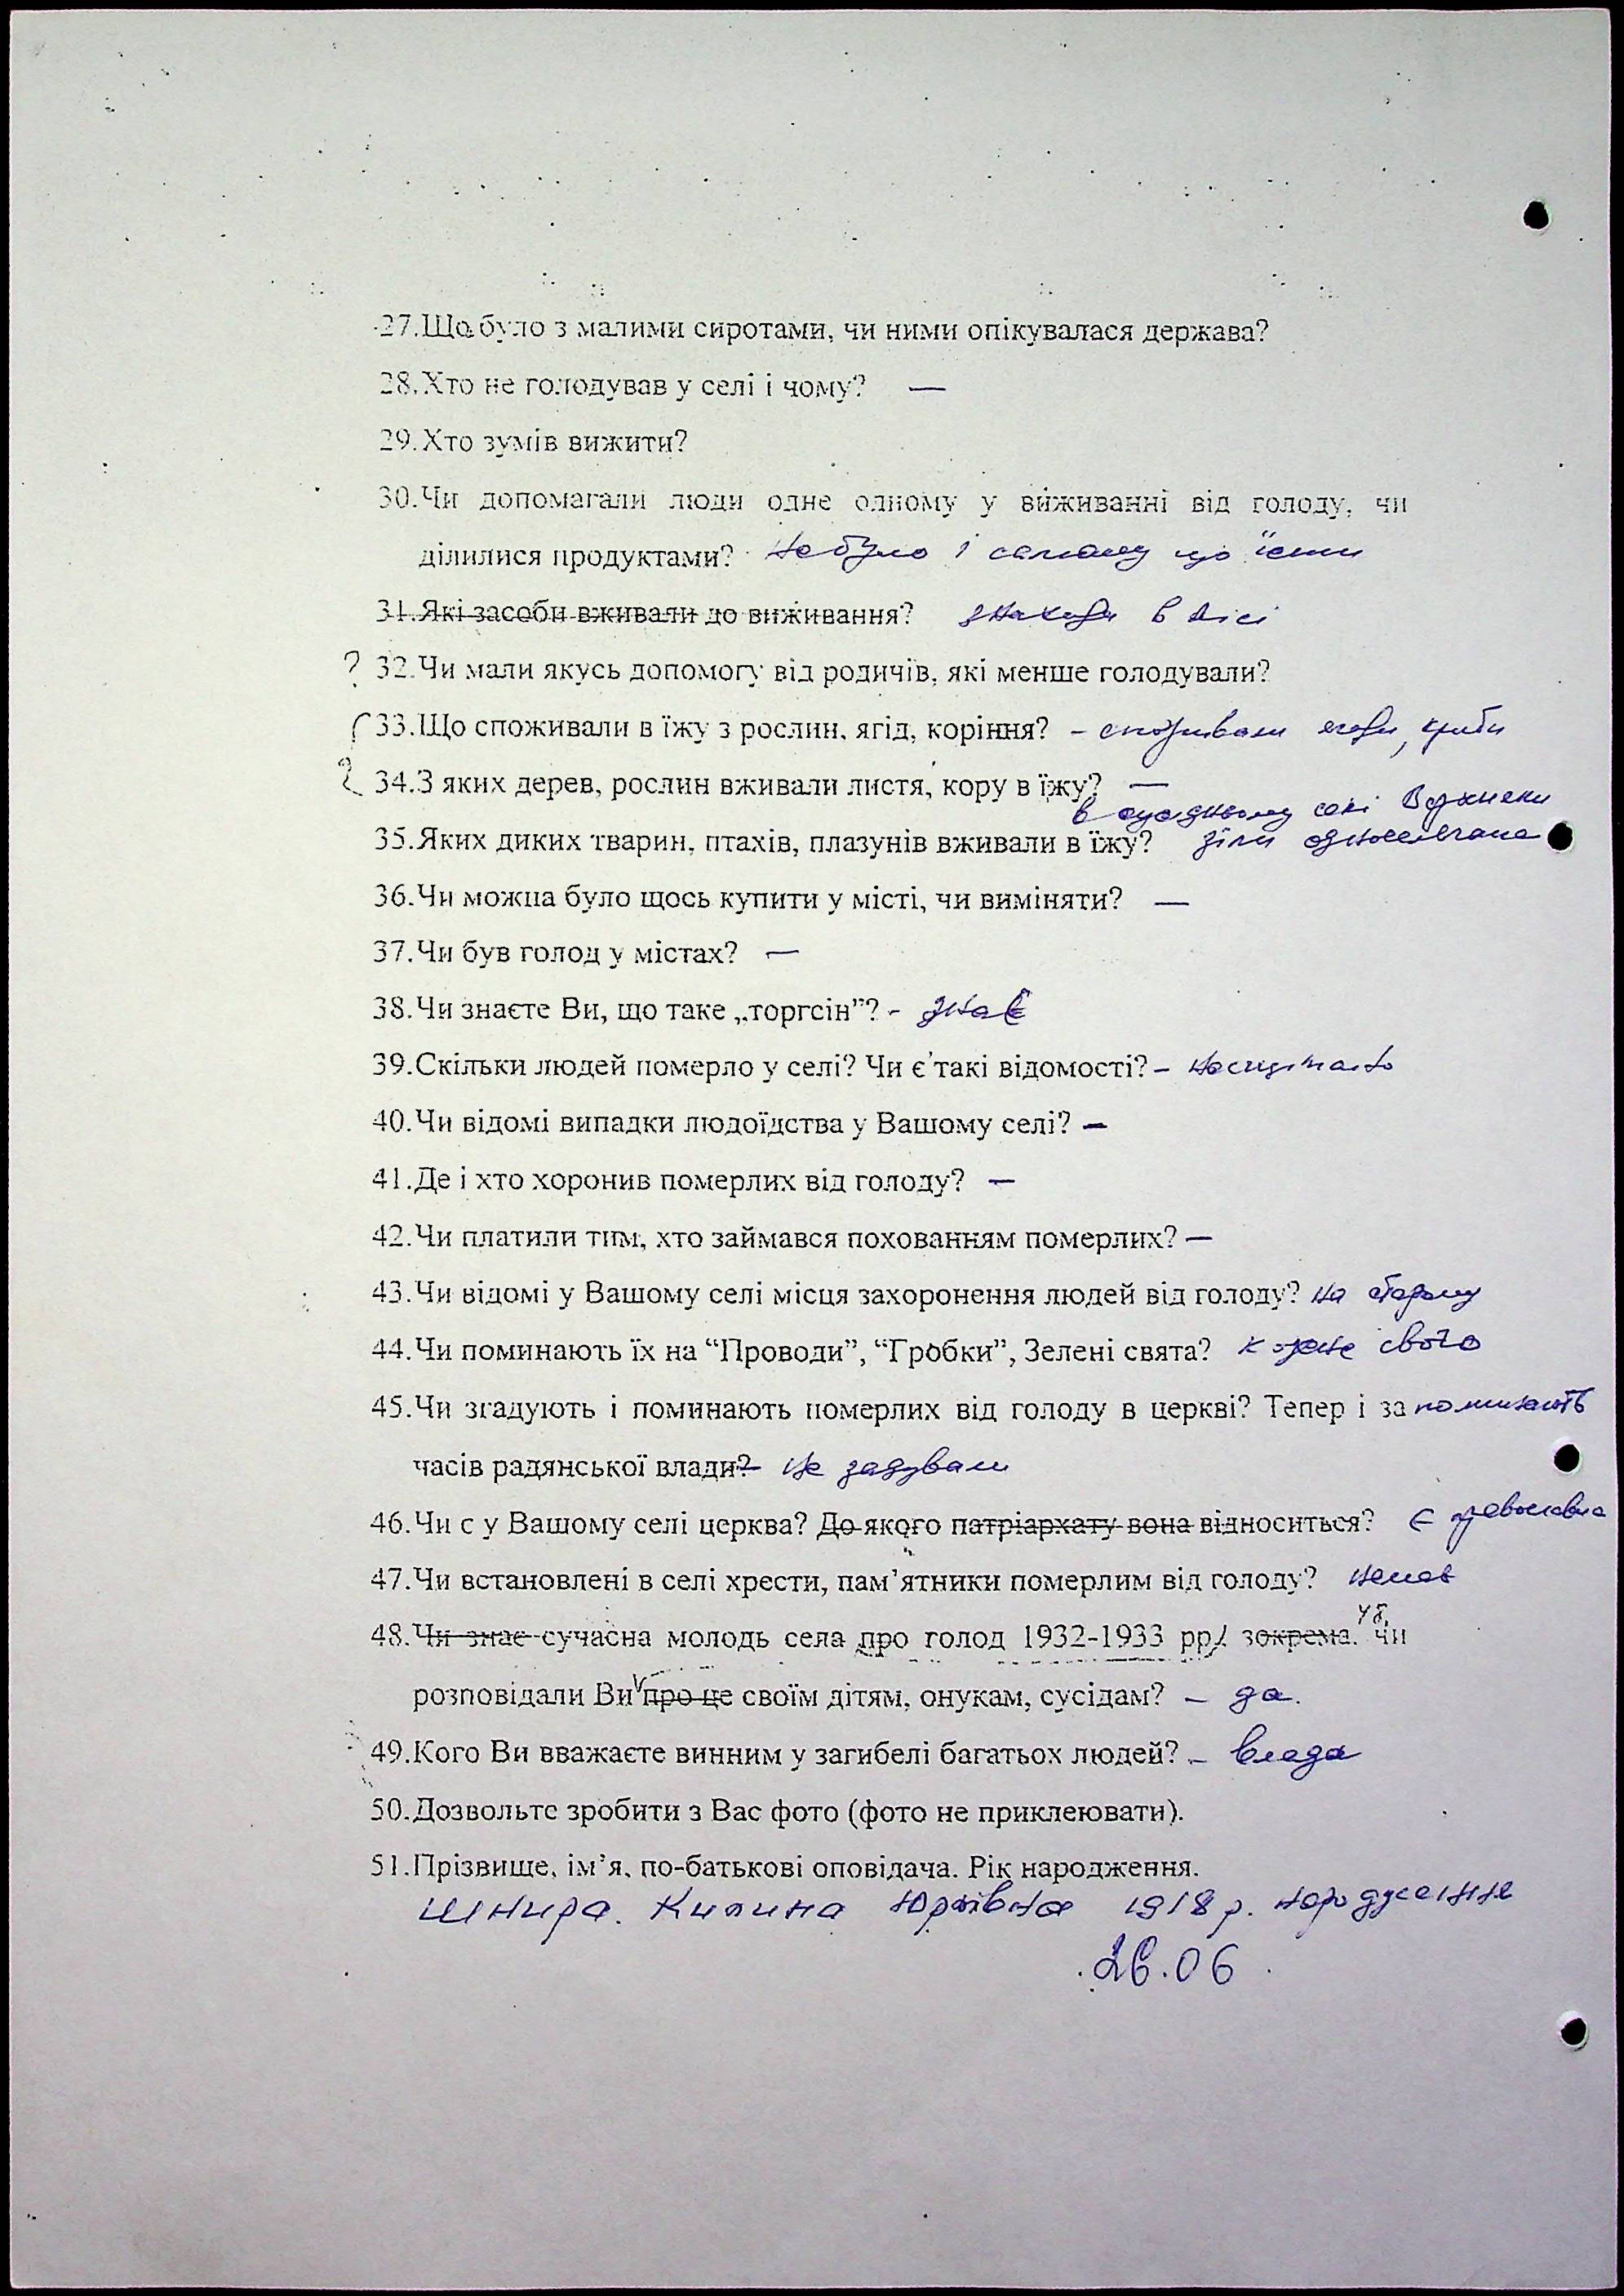 27.Що було з малими сиротами, чи ними опікувалася держава?
28.Хто не голодував у селі і чому? —
29.Хто зумів вижити?
30.Чи допомагали люди одне одному у виживанні від голоду, чи
ділилися продуктами? Не було і самому що їсти
31.Які засоби вживали до виживання? в лісі
? 32.Чи мали якусь допомогу від родичів, які менше голодували?
33.Що споживали в їжу з рослин, ягід, коріння? – споживали ягоди, гриби
34.З яких дерев, рослин вживали листя, кору в їжу? —
в сусідньому селі
35.Яких диких тварин, птахів, плазунів вживали в їжу? їли односельчана
36.Чи можна було щось купити у місті, чи виміняти? —
37.Чи був голод у містах? —
38.Чи знаєте Ви, що таке „торгсін”? - знає
39.Скільки людей померло у селі? Чи є такі відомості? –
40.Чи відомі випадки людоїдства у Вашому селі? –
41.Де і хто хоронив померлих від голоду? —
42.Чи платили тим, хто займався похованням померлих? —
43.Чи відомі у Вашому селі місця захоронення людей від голоду? на
44.Чи поминають їх на “Проводи”, “Гробки”, Зелені свята? кожне свого
45.Чи згадують і поминають померлих від голоду в церкві? Тепер і за поминають
часів радянської влади? не згадували
46.Чи є у Вашому селі церква? До якого патріархату вона відноситься? Є православна
47.Чи встановлені в селі хрести, пам’ятники померлим від голоду? немає
48.Чи знає сучасна молодь села про голод 1932-1933 рр. зокрема. чи
розповідали Ви про це своїм дітям, онукам, сусідам? – да.
49.Кого Ви вважаєте винним у загибелі багатьох людей? – влада
50.Дозвольте зробити з Вас фото (фото не приклеювати).
51.Прізвище, ім’я, по-батькові оповідача. Рік народження.
Шнира. Килина Юрківна 1918 р. народження
26.06